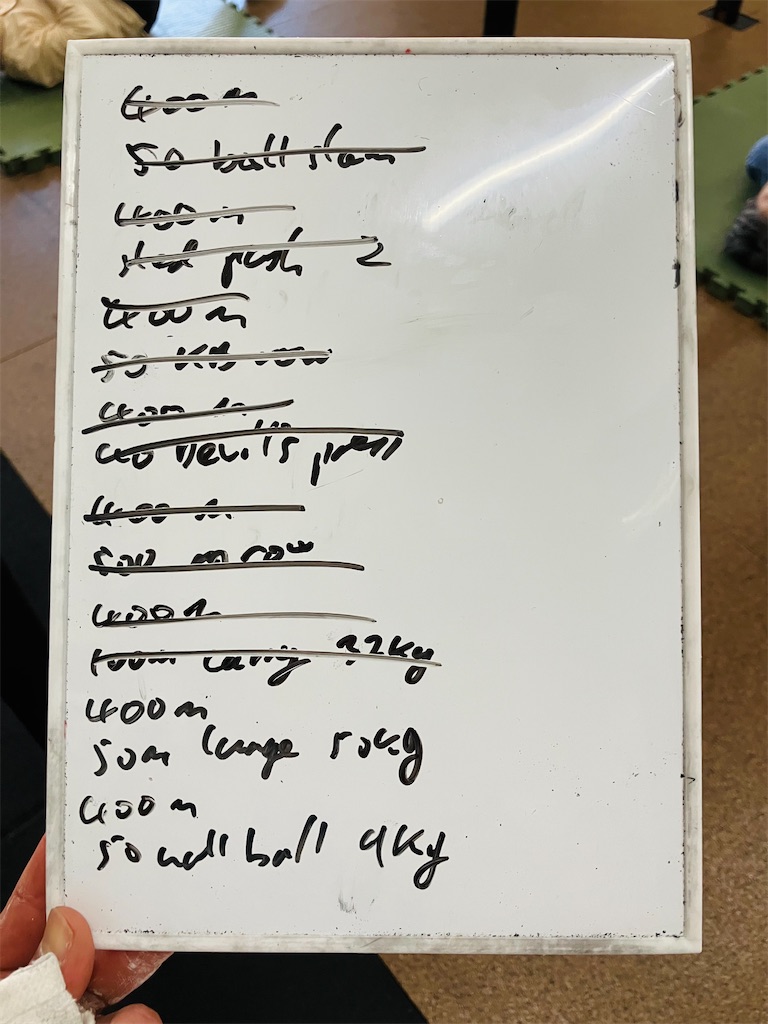 400m
50 ball slam
400m
sled push 2
400m
50 KB row
400m
40 Devil's press
400m
500 m row
400m
100m carry 32kg
400m
50m lunge 50kg
400m
50 wall ball 9Kg